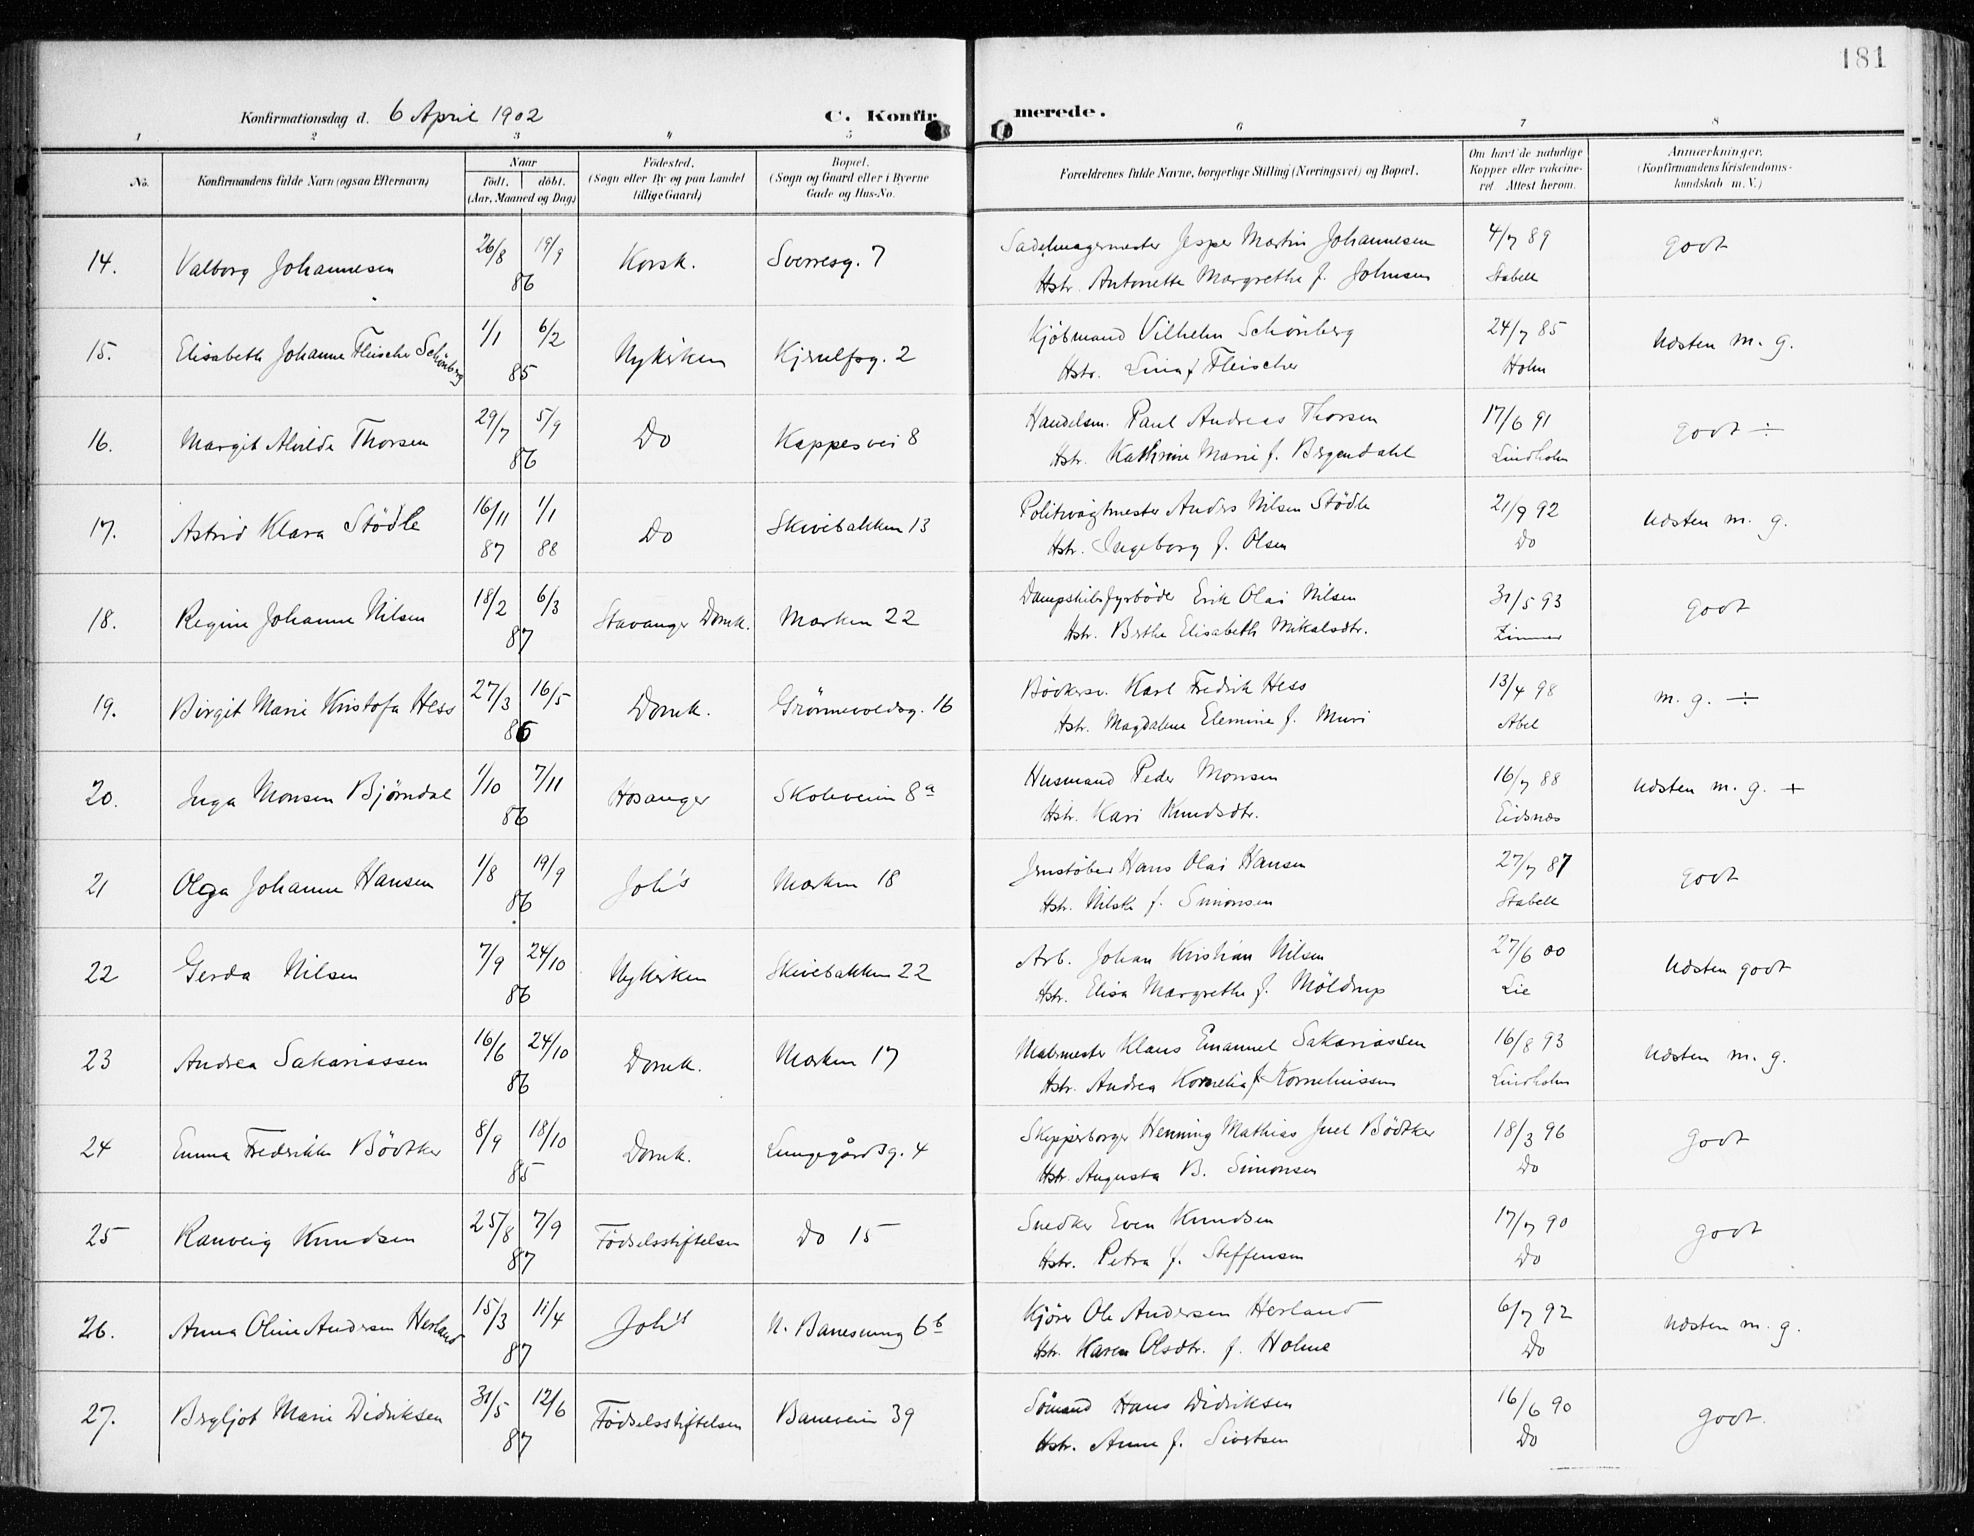 181
Konfirmationsdag d. 6 April 1902 C. Konfirmerede.
1 2 3 4 5 6 7 8
No. Konfirmandens fulde Navn (ogsaa Efternavn) Naar födt. döbt. (Aar, Maaned og Dag) Födested. (Sogn eller By og paa Landet tillige Gaard) Bopæl. (Sogn og Gaard eller i Byerne Gade og Hus-No. Forældrenes fulde Navne, borgerlige Stilling (Næringsvei) og Bopæl. Om havt de naturlige Kopper eller vaccineret. Attest herom. Anmærkninger. (Konfirmandens Kristendomskundskab m. V.)
14. Valborg Johannesen 26/8 19/9 86 Korsk. Sverresg. 7 Sadelmagermester Jesper Martin Johannesen 4/7 89 godt
Hstr. Antonette Margrethe f. Johnsen Stabell
15. Elisabeth Johanne Fleischer Schönberg 1/1 6/2 85 Nykirken Kjerulfsg. 2 Kjöbmand Vilhelm Schönberg 24/7 85 Næsten m. g.
Hstr. Lina f Fleischer Holm
16. Margit Alvilde Thorsen 29/7 5/9 86 Do Kappesvei 8 Handelsm. Paul Andreas Thorsen 17/6 91 godt ÷
Hstr. Kathrine Marie f. Bergendahl Lindholm
17. Astrid Klara Stödle 16/11 87 1/1 88 Do Skivebakken 13 Politivagtmester Anders Nilsen Stödle 21/9 92 Næsten m. g.
Hstr. Ingeborg f. Olsen Do
18. Regine Johanne Nilsen 18/2 6/3 87 Stavanger Domk. Marken 22 Dampskibsfyrböder Erik Olai Nilsen 31/5 93 godt
Hstr. Berthe Elisabeth Mikalsdtr. Zimmer
19. Birgit Marie Kristofa Hess 27/3 16/5 86 Domk. Grønnevoldsg. 16 Bödkersv. Karl Fredrik Hess 13/4 98 m. g. ÷
Hstr. Magdalene Elemine f. Muri Abel
20. Inga Monsen Bjørndal 1/10 7/11 86 Hosanger Skoleveien 8a Husmand Peder Monsen 16/7 88 Næsten m. g. +
Hstr. Kari Knudsdtr. Eidsnæs
21 Olga Johanne Hansen 1/8 19/9 86 Joh's Marken 18 Jernstöber Hans Olai Hansen 27/7 87 godt
Hstr. Nilsk f. Simonsen Stabell
22 Gerda Nilsen 7/9 24/10 86 Nykirken Skivebakken 22 Arb. Johan Kristian Nilsen 27/6 00 Næsten godt
Hstr. Elisa Margrethe f. Möldrup Lie
23 Andrea Sakariassen 16/6 24/10 86 Domk. Marken 17 Malermester Klaus Emanuel Sakariassen 16/8 93 Næsten m. g.
Hstr. Andrea Kornelia f. Korneliussen Lindholm
24 Emma Fredrikke Bödtker 8/9 18/10 85 Domk. Lungegårdsg. 4 Skipperborger Henning Mathias Juel Bödtker 18/3 96 Godt
Hstr. Augusta B. Simonsen Do
25 Ranveig Knudsen 25/8 7/9 87 Födselsstiftelsen Do 15 Snedker Even Knudsen 17/7 90 godt
Hstr. Petra f. Steffensen Do
26. Anna Oline Andersen Herland 15/3 11/4 87 Joh's N. Banesmug 6b Kjörer Ole Andersen Herland 6/7 92 Næsten m. g.
Hstr. Karen Olsdtr. f. Holme Do
27. Bergljot Marie Didriksen 31/5 12/6 87 Födselsstiftelsen Baneveien 39 Sömand Hans Didriksen 16/6 90 godt.
Hstr. Anne f. Sivertsen Do